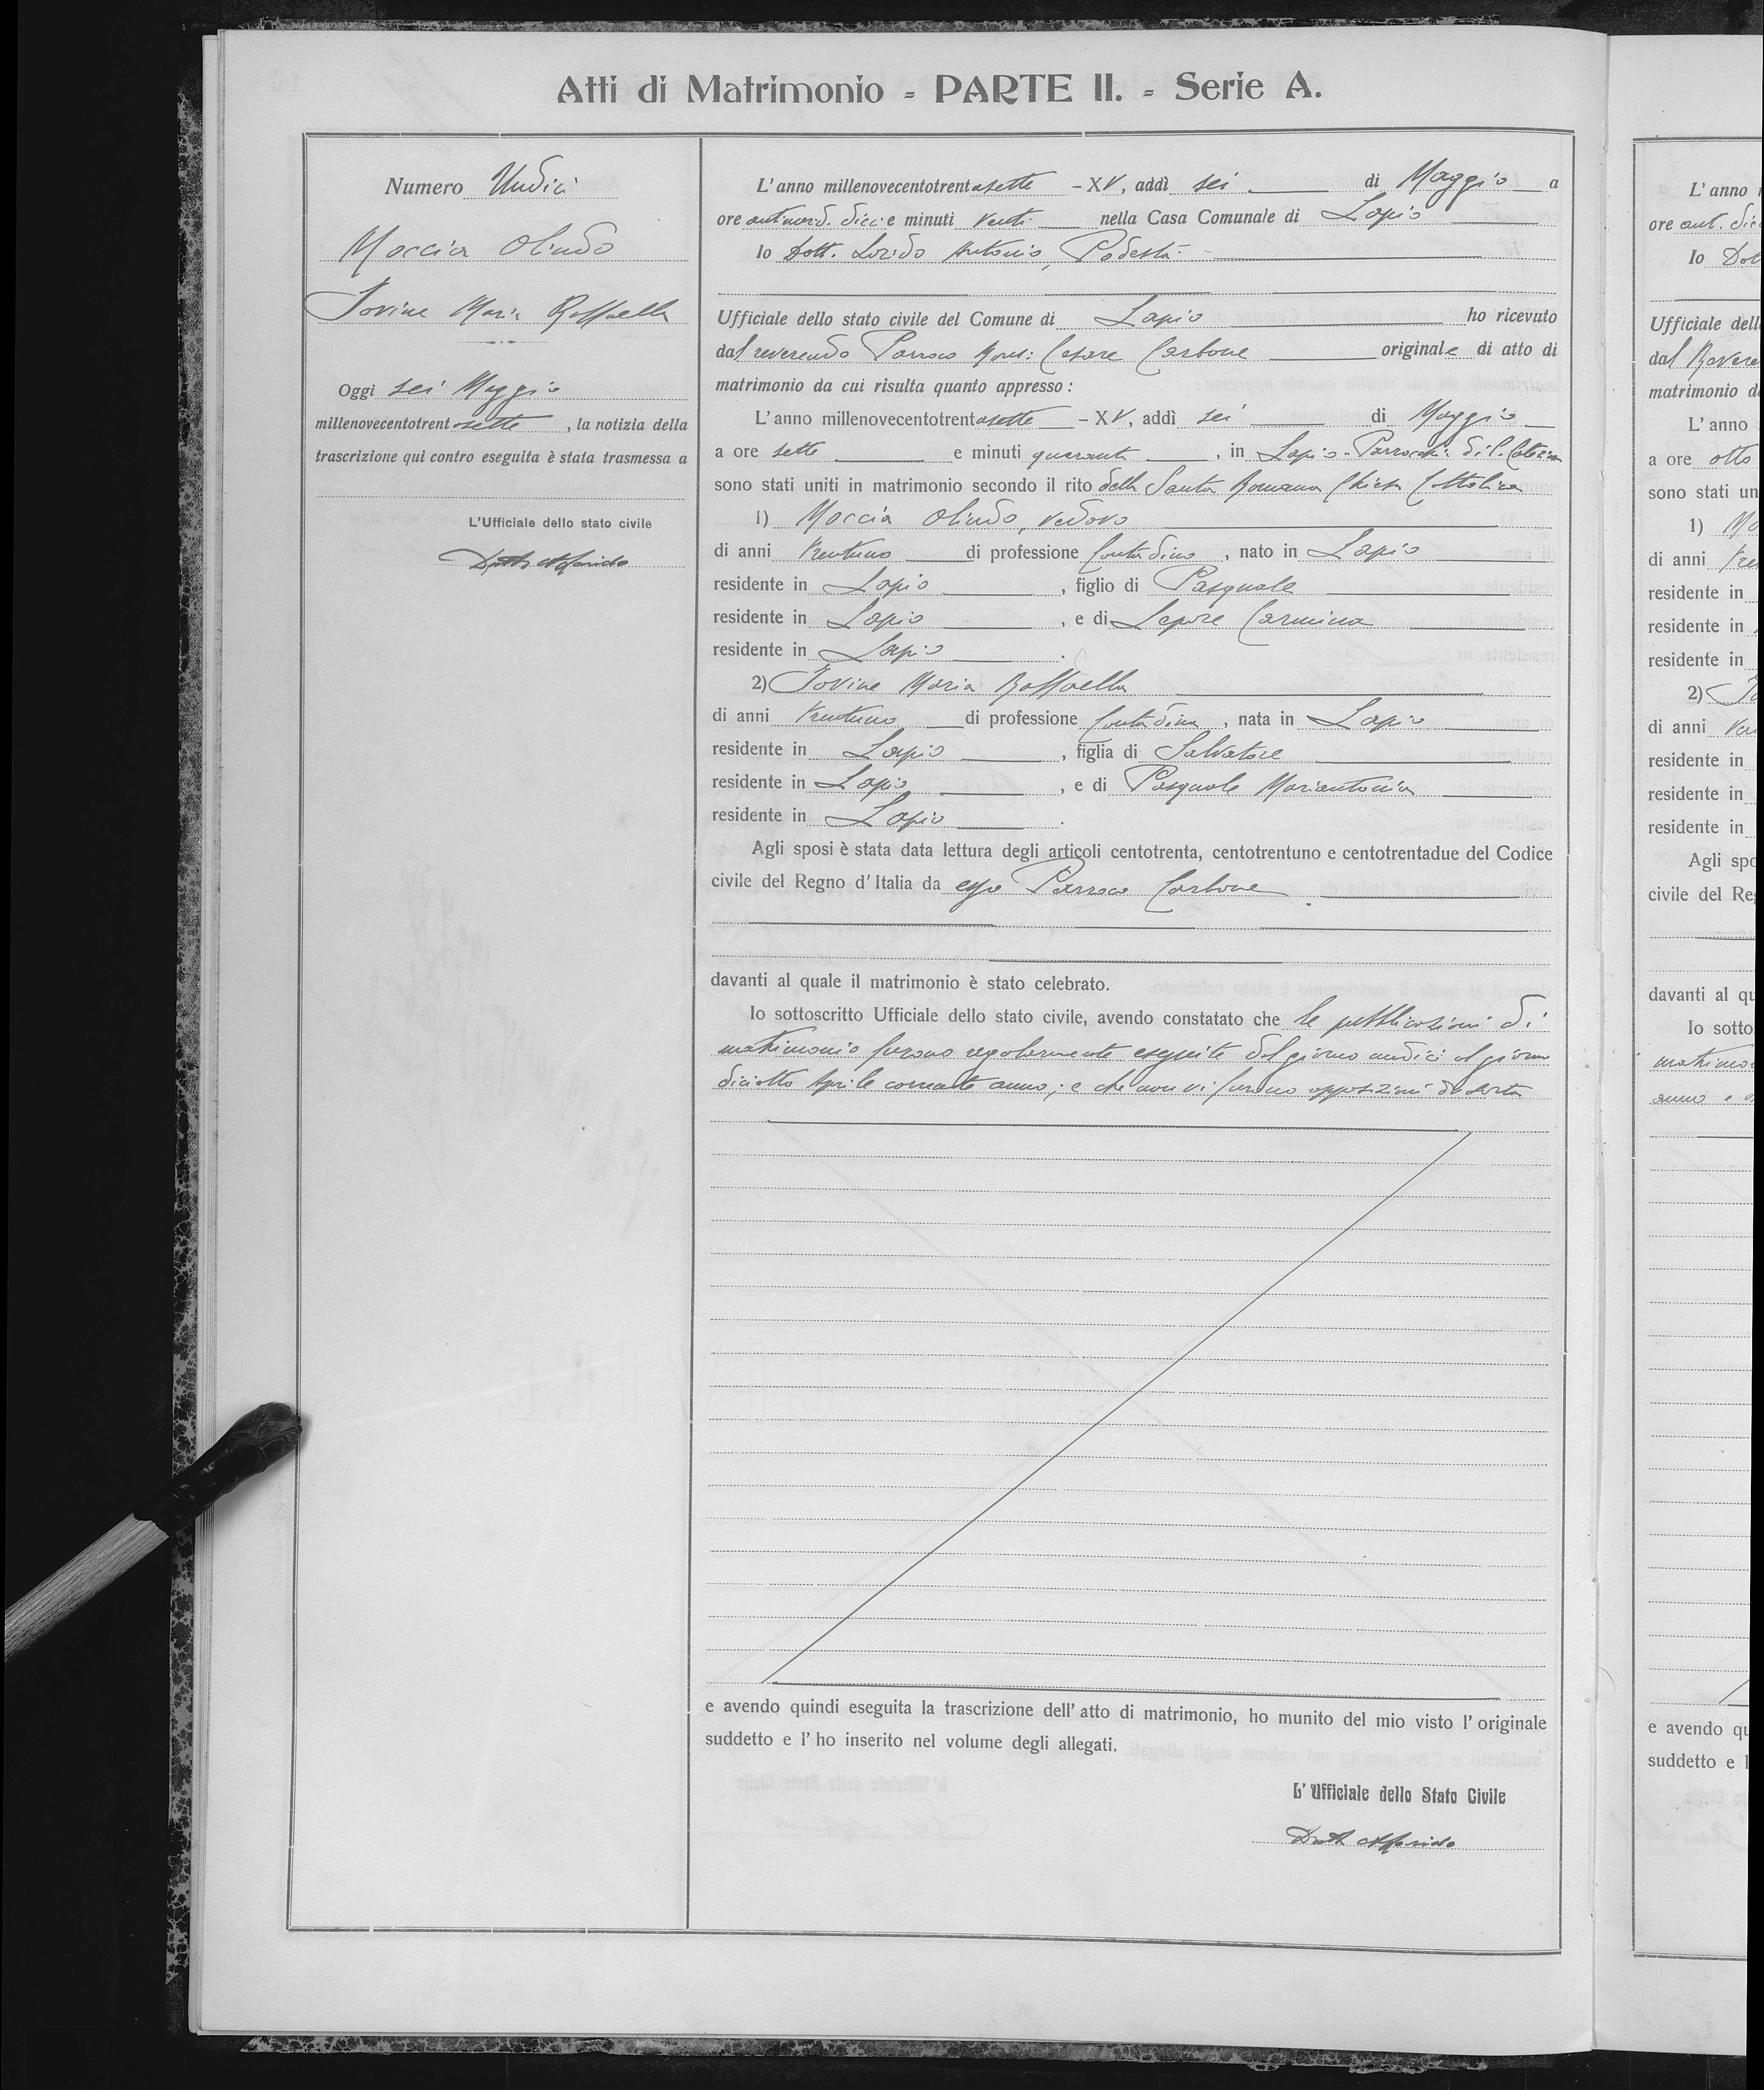 Atti di Matrimonio - PARTE II. - Serie A.
Numero Undici
Moccia Olindo
Iovine Maria Raffaella
Oggi sei Maggio
millenovecentotrentasette, la notizia della
trascrizione qui contro eseguita è stata trasmessa a
L'Ufficiale dello stato civile
L'anno millenovecentotrentasette - XV, addì sei di Maggio a
ore antimerid. dieci e minuti venti nella Casa Comunale di Lapio
Io Dott. Antonio, Podestà
Ufficiale dello stato civile del Comune di Lapio ho ricevuto
dal reverendo Parroco Mons: Cesare Carbone originale di atto di
matrimonio da cui risulta quanto appresso:
L'anno millenovecentotrentasette - XV, addì sei di Maggio
a ore sette e minuti quaranta, in Lapio - Parrocchia di S. Caterina
sono stati uniti in matrimonio secondo il rito della Santa Romana Chiesa Cattolica
1) Moccia Olindo, vedovo
di anni trentuno di professione Contadino, nato in Lapio
residente in Lapio, figlio di Pasquale
residente in Lapio, e di Lepore Carmina
residente in Lapio.
2) Iovine Maria Raffaella
di anni trentuno di professione Contadina, nata in Lapio
residente in Lapio, figlia di Salvatore
residente in Lapio, e di Pasquale Mariantonia
residente in Lapio.
Agli sposi è stata data lettura degli articoli centotrenta, centotrentuno e centotrentadue del Codice
civile del Regno d'Italia da esso Parroco Carbone.
davanti al quale il matrimonio è stato celebrato.
Io sottoscritto Ufficiale dello stato civile, avendo constatato che le pubblicazioni di
matrimonio furono regolarmente eseguite dal giorno undici al giorno
diciotto Aprile corrente anno; e che non vi furono opposizioni di sorta
e avendo quindi eseguita la trascrizione dell'atto di matrimonio, ho munito del mio visto l'originale
suddetto e l'ho inserito nel volume degli allegati.
L'Ufficiale dello Stato Civile
L'anno
ore ant.
Io
Ufficiale
dal
matrimonio
L'anno
a ore otto
sono stati
1)
di anni
residente in
residente in
residente in
2)
di anni
residente in
residente in
residente in
Agli
civile del
davanti al
Io
anno e
e avendo
suddetto e